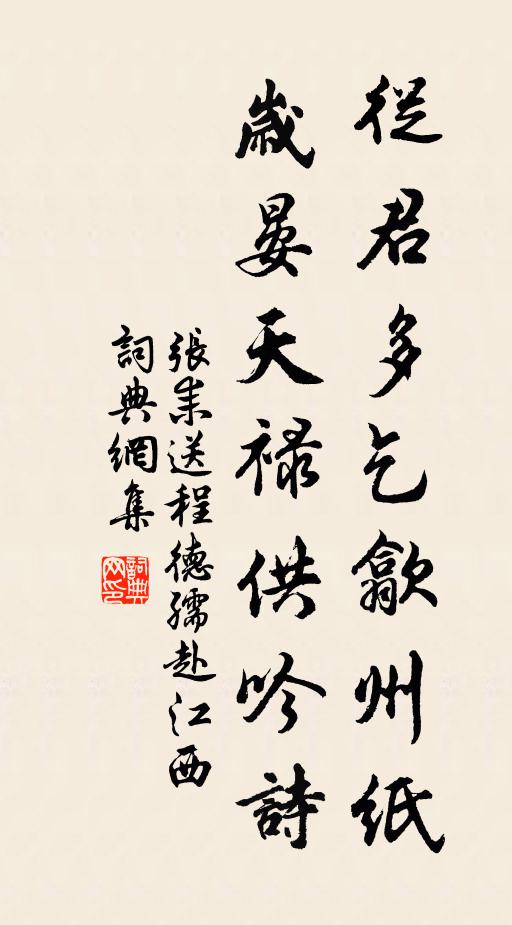 從君多乞歙州紙
歲晏天祿供吟詩
張耒送程德孺赴江西
詞典網集
詞典网印